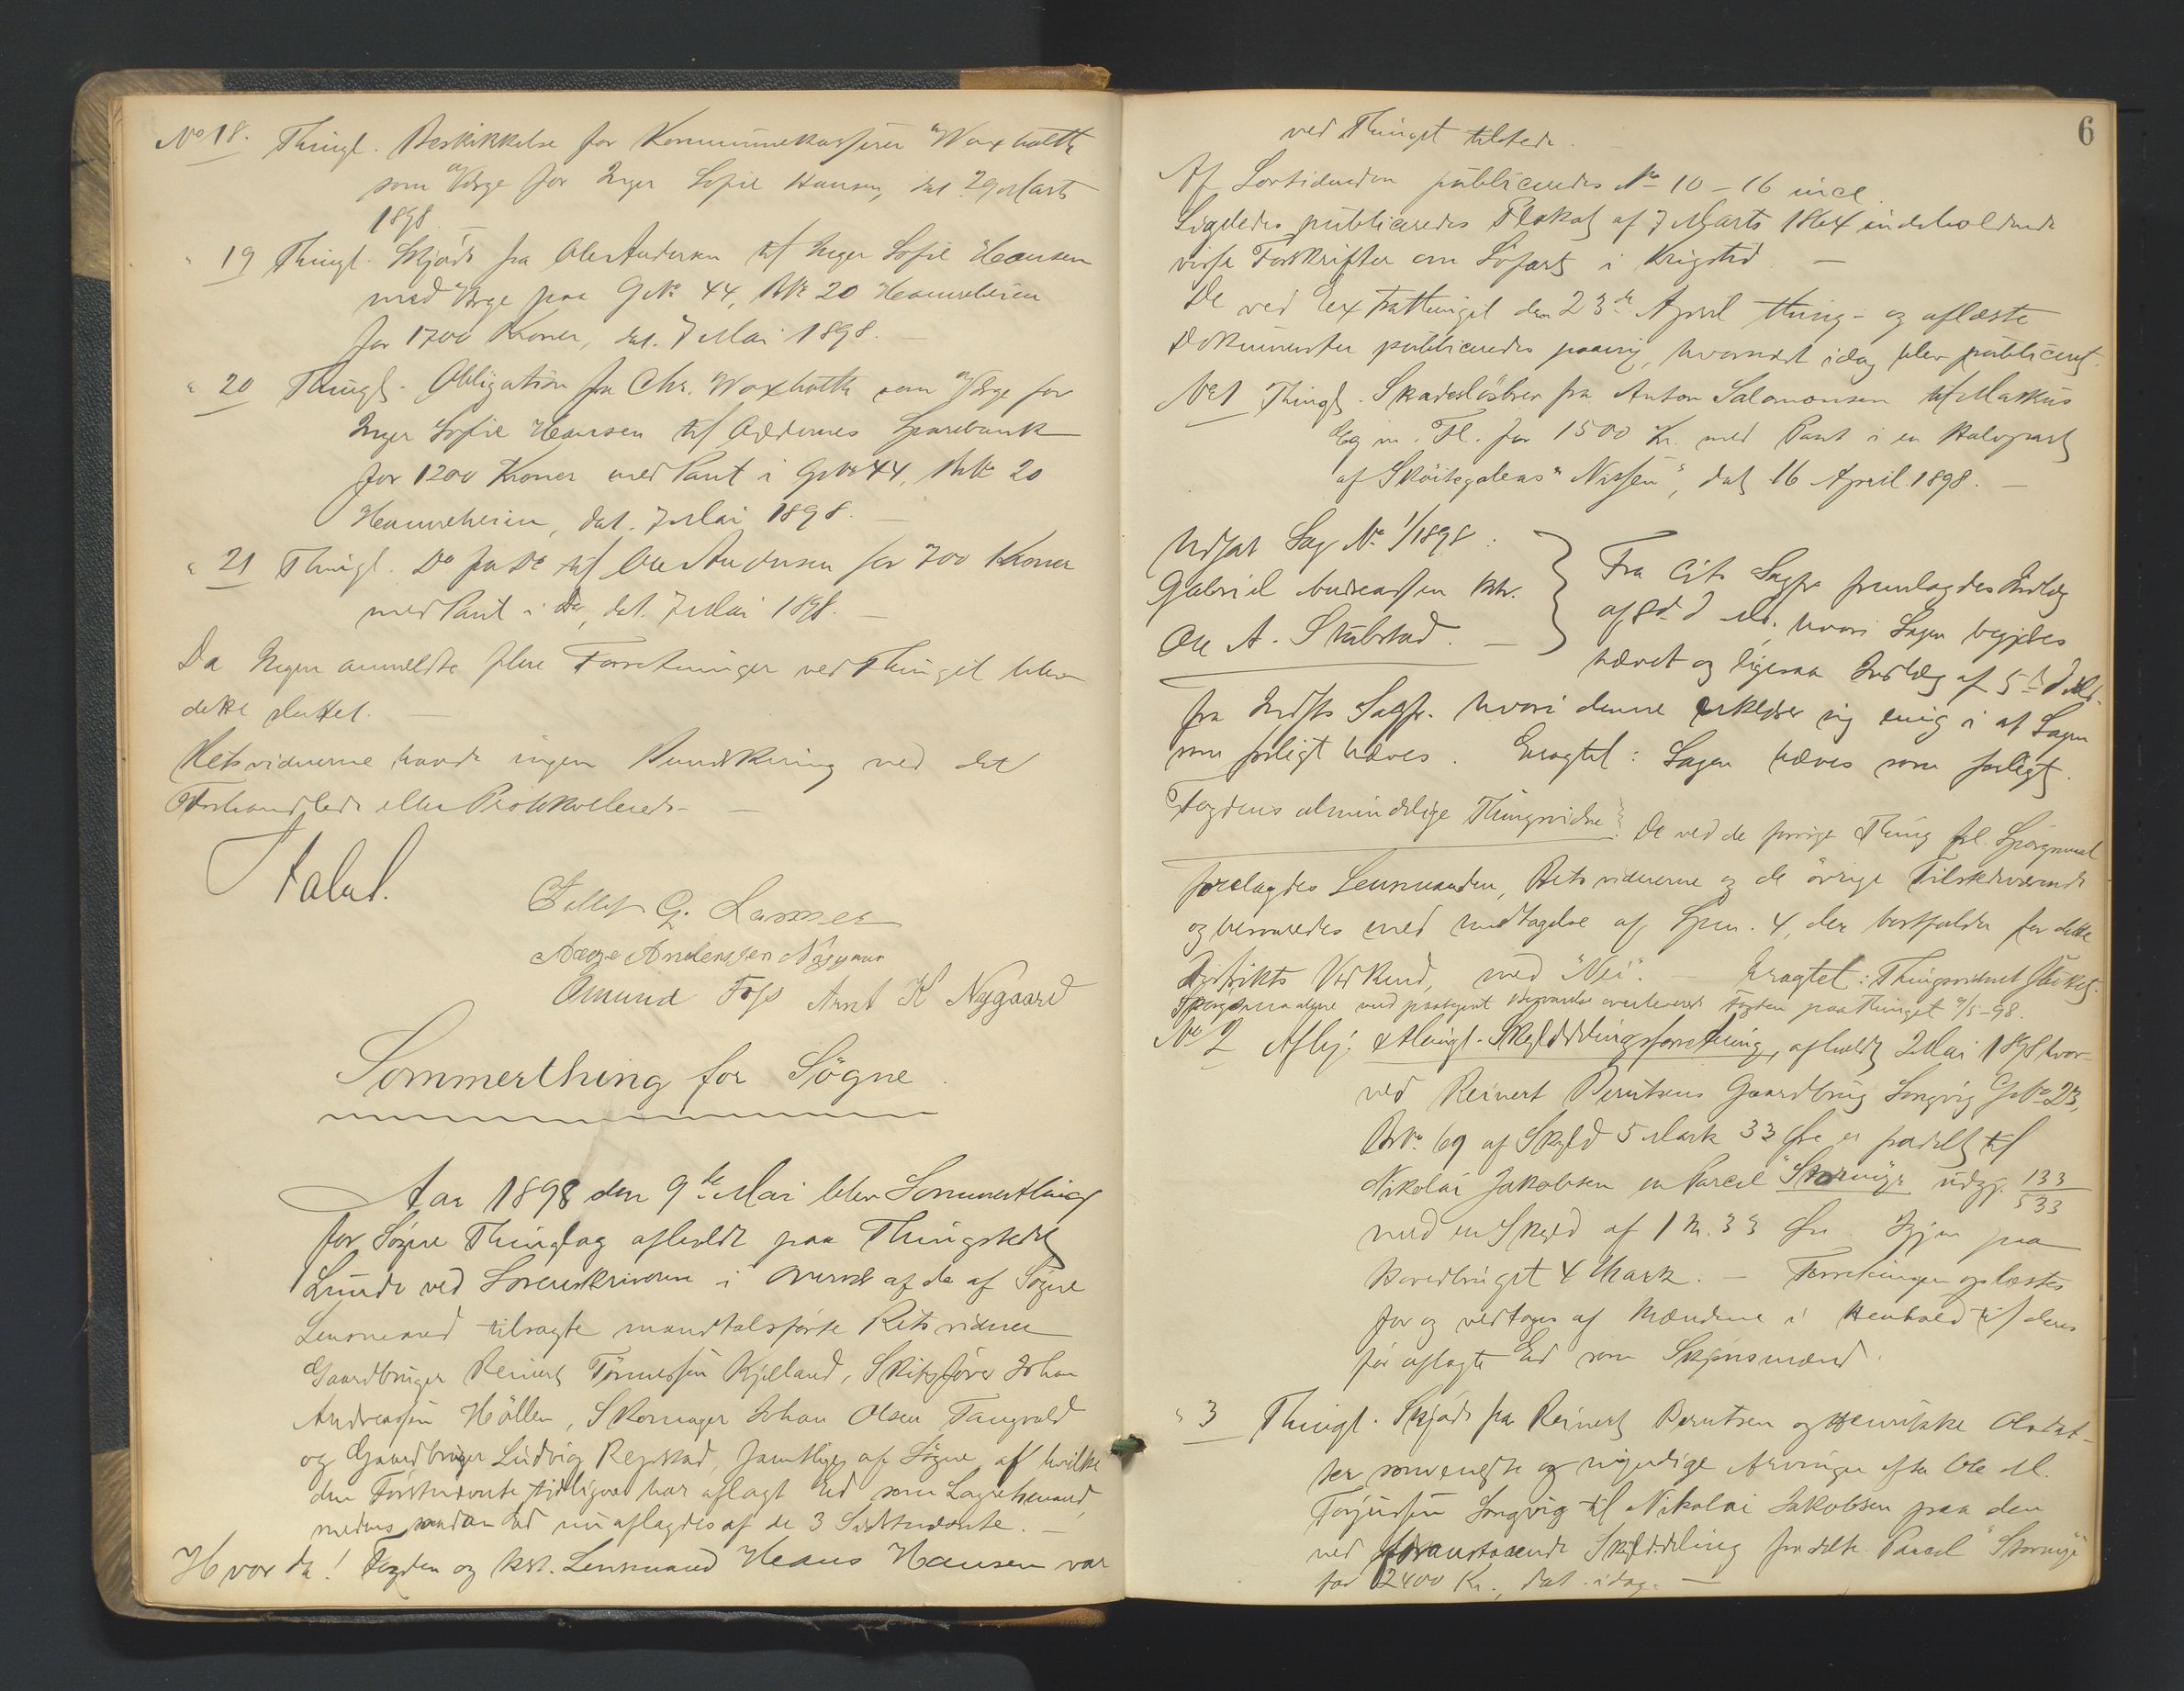 No 18. Thingl. Beskikkelse for Kommunekasserer Waxholth
som Værge for Inger Sofie Hansen, dat. 29 Marts
1898. –
" 19 Thingl. Skjøde fra Ole Andersen til Inger Sofie Hansen
med Værge paa GNo 44, BNo 20 Hamreheien
for 1700 Kroner, dat. 7 Mai 1898. –
" 20 Thingl. Obligation fra Chr. Waxholth som Værge for
Inger Sofie Hansen til Oddernes Sparebank
for 1200 Kroner med Pant i GNo 44, BNo 20
Hamreheien, dat. 7 Mai 1898. –
" 21 Thingl. Do fra Do til Ole Andersen for 700 Kroner
med Pant i Do, dat. 7 Mai 1898. –
Da Ingen anmeldte flere Forretninger ved Thinget blev
dette sluttet. –
Retsvidnerne havde ingen Bemærkning ved det
Forhandlede eller Protokollerede. –
Stabel.
Tellef G. Lammer
Aage Anderssen Nygaard
Omund Foss Arnt K Nygaard
Sommerthing for Søgne.
Aar 1898 den 9de Mai blev Sommerthing
for Søgne Thinglag afholdt paa Thingstedet
Lunde ved Sorenskriveren i Overvær af de af Søgne
Lensmand tilsagte mandtalsførte Retsvidner
Gaardbruger Reinert Tønnessen Kjelland, Skibsfører Johan
Andreassen Høllen, Skomager Johan Olsen Tangvald
og Gaardbruger Ludvig Repstad, samtlige af Søgne, af hvilke
den Førstnævnte tidligere har aflagt Ed som Lagrettemand,
medens saadan Ed nu aflagdes af de 3 Sidstnævnte. –
Hvor da! Fogden og kst. Lensmand Hans Hansen var
6
ved Thinget tilstede. –
Af Lovtidenden publiceredes No 10 – 16 incl.
Ligeledes publiceredes Plakat af 7 Marts 1864 indeholdende
visse Forskrifter om Søfart i Krigstid. –
De ved Extrathinget den 23de April thing- og aflæste
Dokumenter publiceredes paany, hvornæst idag blev publiceret.
No 1 Thingl. Skadesløsbrev fra Anton Salomonsen til Markus
Eg m. Fl. for 1500 Kr. med Pant i en Halvpart
af Skøitegaleas "Nissen", dat. 16 April 1898. –
Udsat Sag No 1/1898 :
Gabriel Andreassen ktr.
Ole A. Stubstad. –
Fra Cit. Sagfr fremlagdes Indlæg
af 8d. d. Md., hvori Sagen begjæres
hævet og ligesaa Indlæg af 5te d. Md.
fra Indst. Sagfr. hvori denne erklærer sig enig i at Sagen
som forligt hæves. Eragtet : Sagen hæves som forligt.
Fogdens almindelige Thingsvidne : De ved de forrige Thing frl. Spørgsmaal
forelagdes Lensmanden, Retsvidnerne og de øvrige Tilstedeværende
og besvaredes med Undtagelse af Spm. 4, der bortfalder for dette
Distrikts Vedkend. med "Nei". – Eragtet : Thingsvidnet sluttet.
Spørgsmaalene med paategnet Besvarelse overleveredes Fogden paa Thinget 9/5-98.
No 2 Aflæst & thingl. Skylddelingsforretning, afholdt 2 Mai 1898 hvor-
ved Reinert Berntsens Gaardbrug Langvig GNo 23,
BNo 69 af Skyld 5 Mark 33 Øre er fradelt til
Nikolai Jakobsen en Parcel "Stormyr" udgj. 133/533
med en Skyld af 1 M. 33 Øre. Igjen paa
Hovedbruget 4 Mark. – Forretningen oplæstes
for og vedtoges af Mændene i Henhold til deres
før aflagte Ed som Skjønsmænd.
" 3 Thingl. Skjøde fra Reinert Berntsen og Henrikke Olsdat-
ter som eneste og myndige Arvinger efter Ole M.
Torjussen Langvig til Nikolai Jakobsen paa den
ved foranstaaende Skylddeling fradelte Parcel "Stormyr"
for 2400 Kr., dat. idag. –